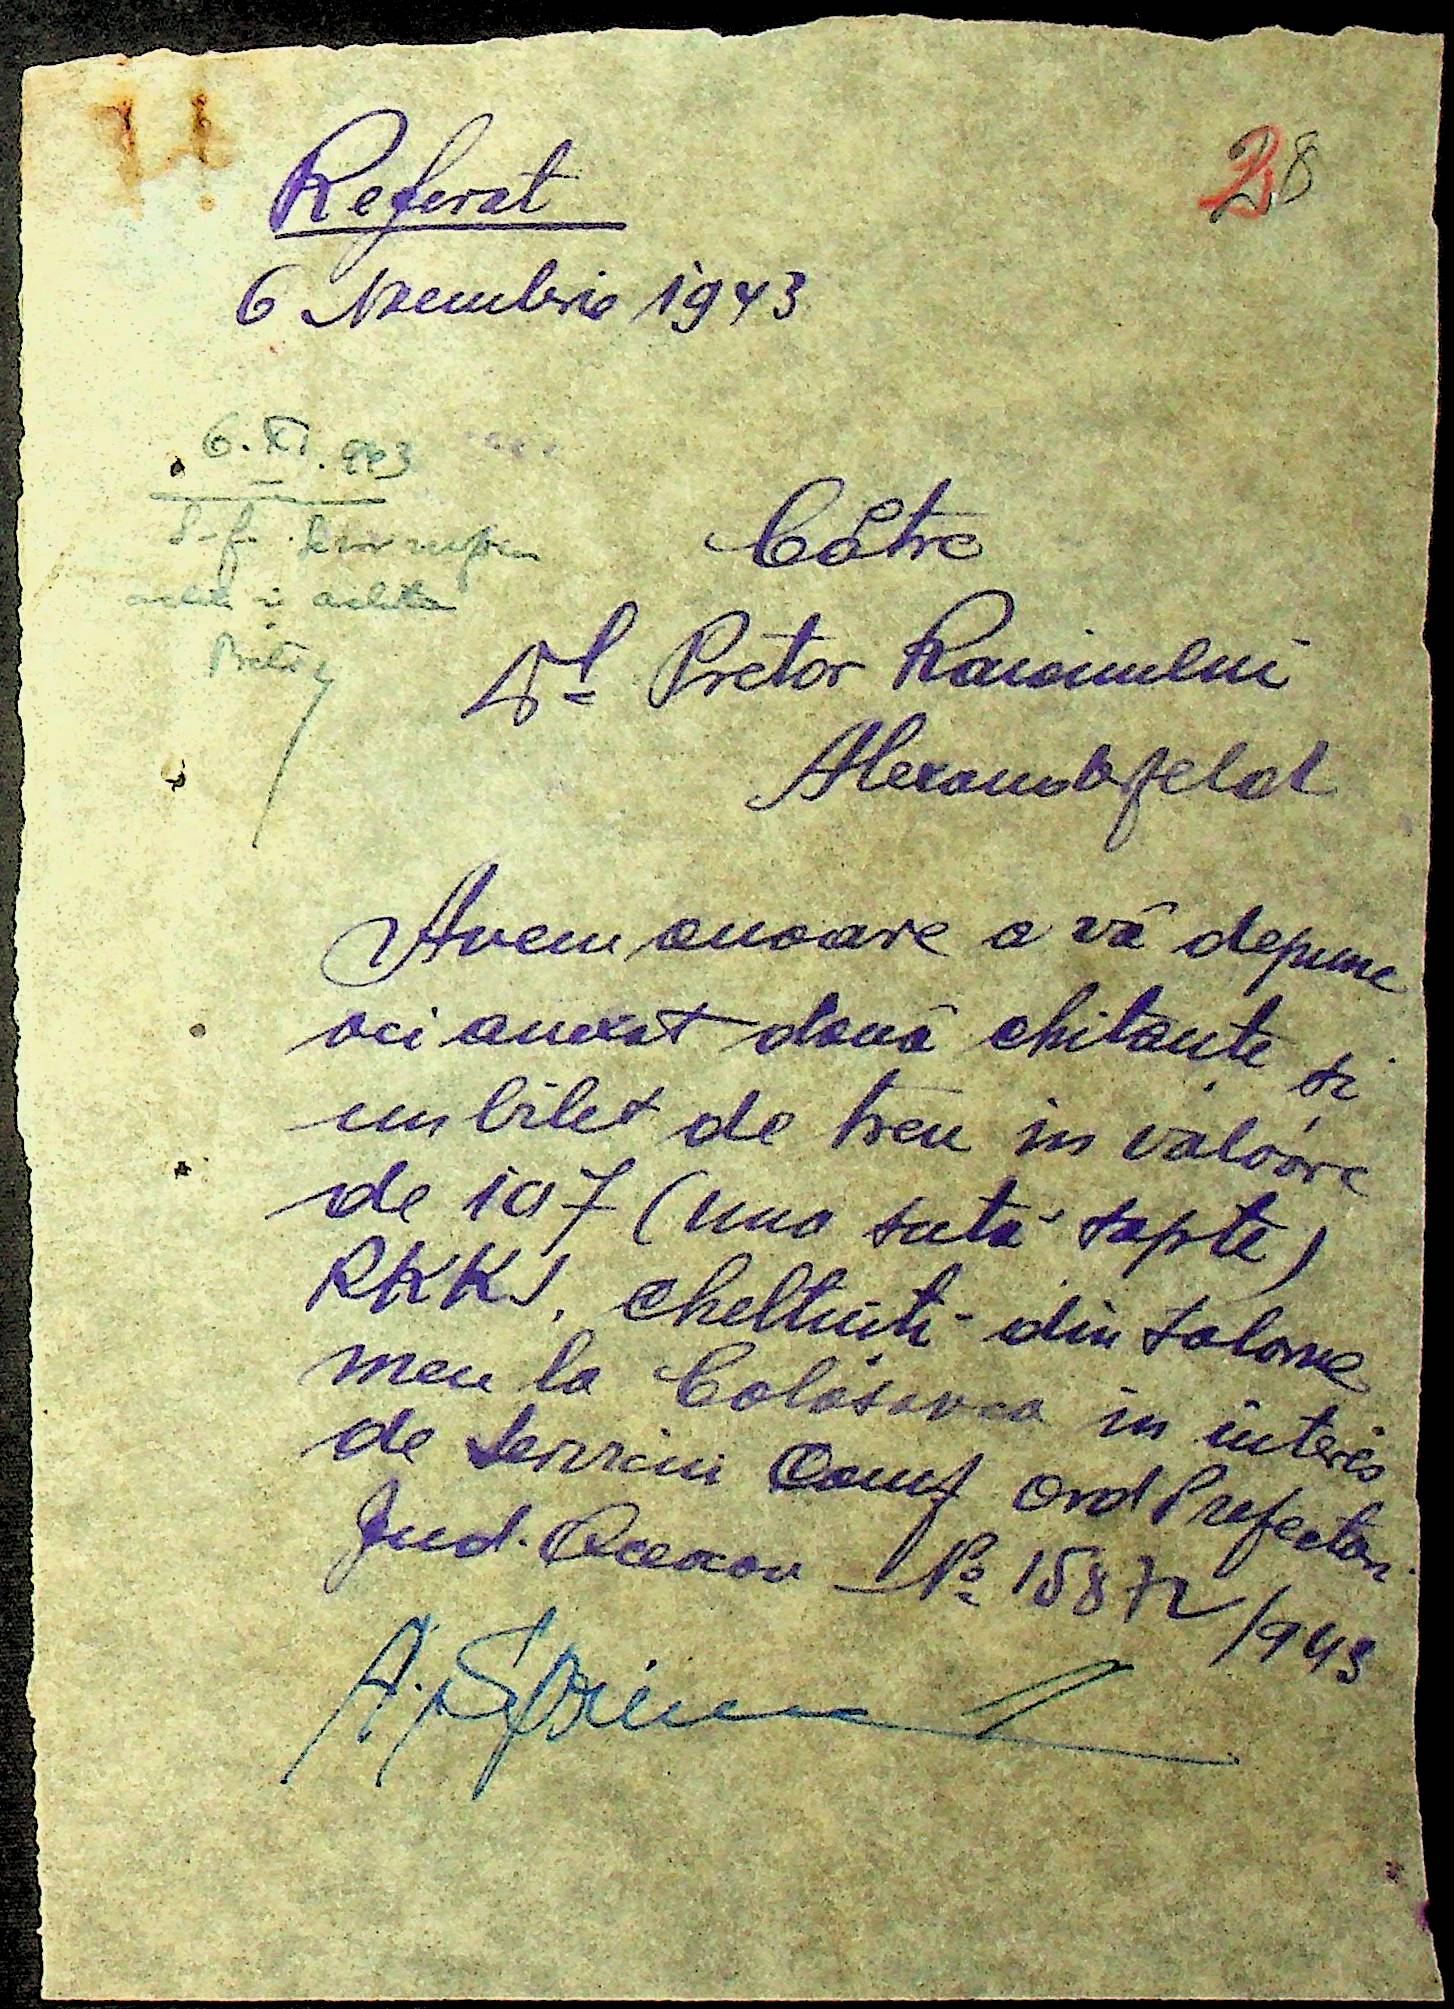 28
Referat
6 Noembrie 1943
6.XI.943
Către
Dl Pretor Raionului
Alexanderfeld
Avem onoare a vă depune
aci anexat două chitanțe si
un bilet de tren in valoare
de 107 (una sută sapte)
RKKS, cheltuiti din solda
meu la Colosovca in interes
de serviciu conf ord Prefectur.
Jud. Oceacov No 15872/943
A.